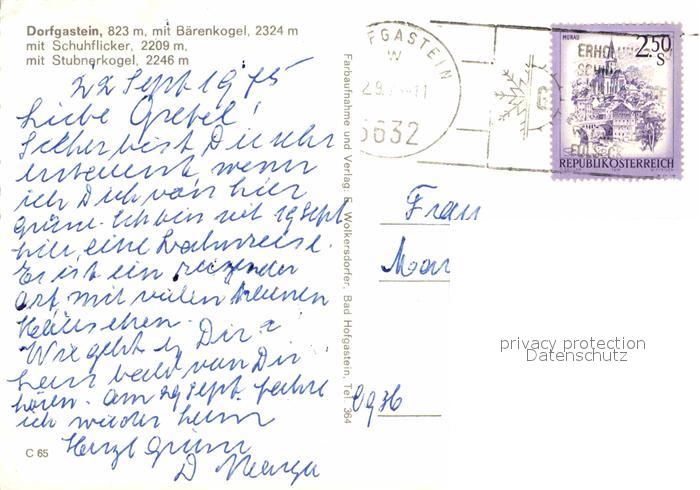 Dorfgastein, 823 m, mit Bärenkogel, 2324 m
mit Schuhflicker, 2209 m,
mit Stubnerkogel, 2246 m
22 Sept 1975
Liebe Gretel!
Sicher bist Du sehr
erstaunt, wenn
ich Dich von hier
grüsse. Ich bin seit 19 Sept.
hier, eine Bahnreise.
Es ist ein reizender
Ort mit vielen kleinen
Häuschen.
Wie geht es Dir?
bald von Dir
hören. Am 29 Sept. fahre
ich wieder heim
Herzl Grüsse
D
C 65
Farbaufnahme und Verlag: E. Wolkersdorfer, Bad Hofgastein, Tel. 364
FGASTEIN
5632
MURAU
2.50
S
REPUBLIK ÖSTERREICH
Frau
privacy protection
Datenschutz